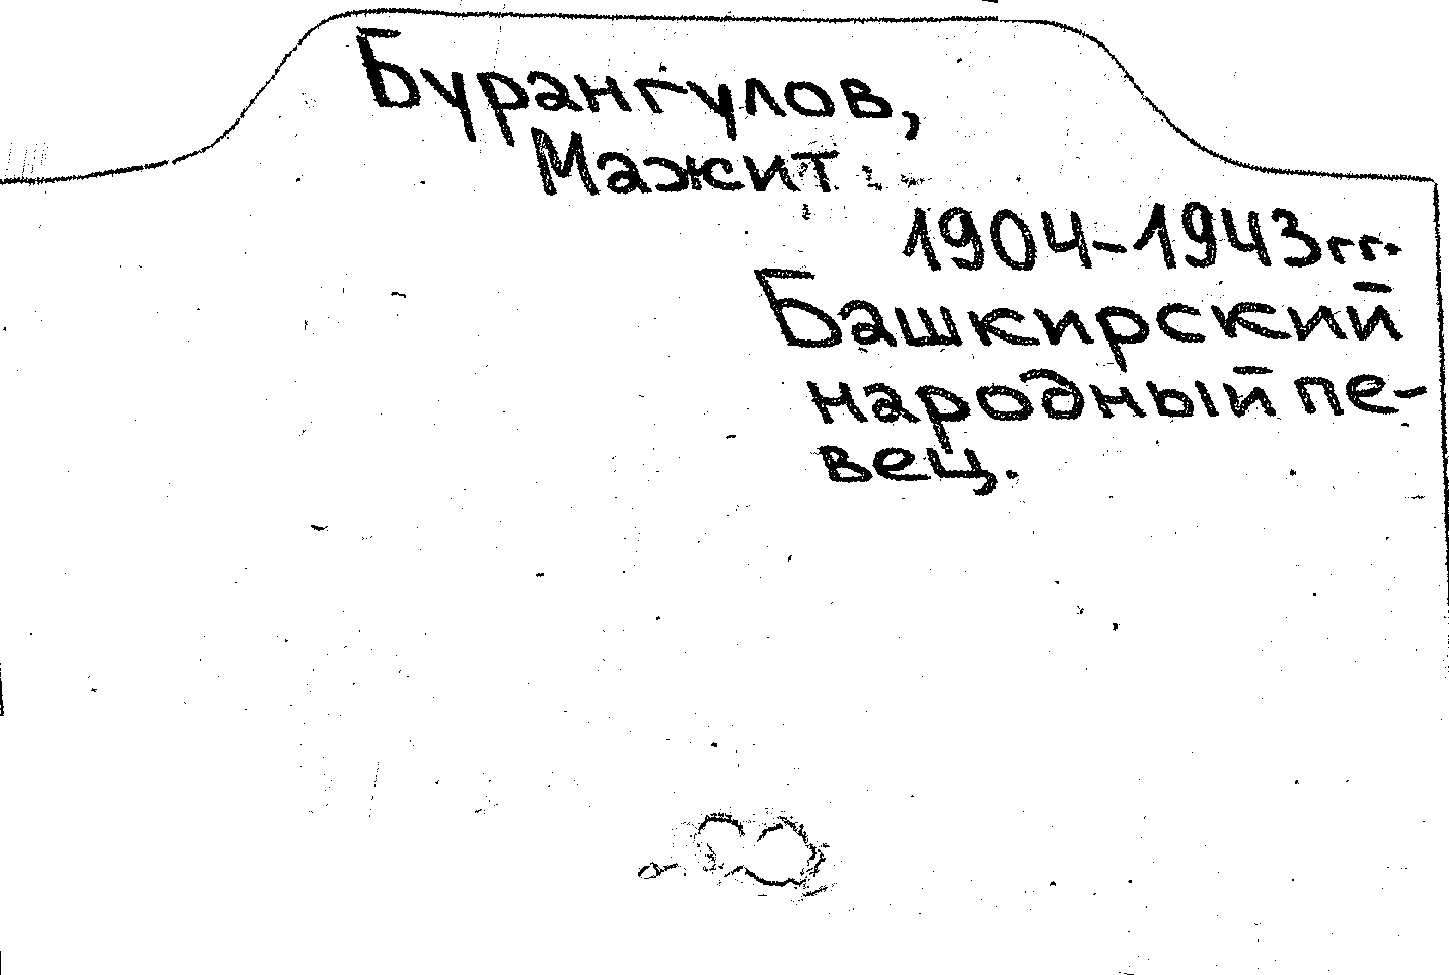 Бурангулов,
Мажит
1904-1943гг.
Башкирский
народный пе-
вец.